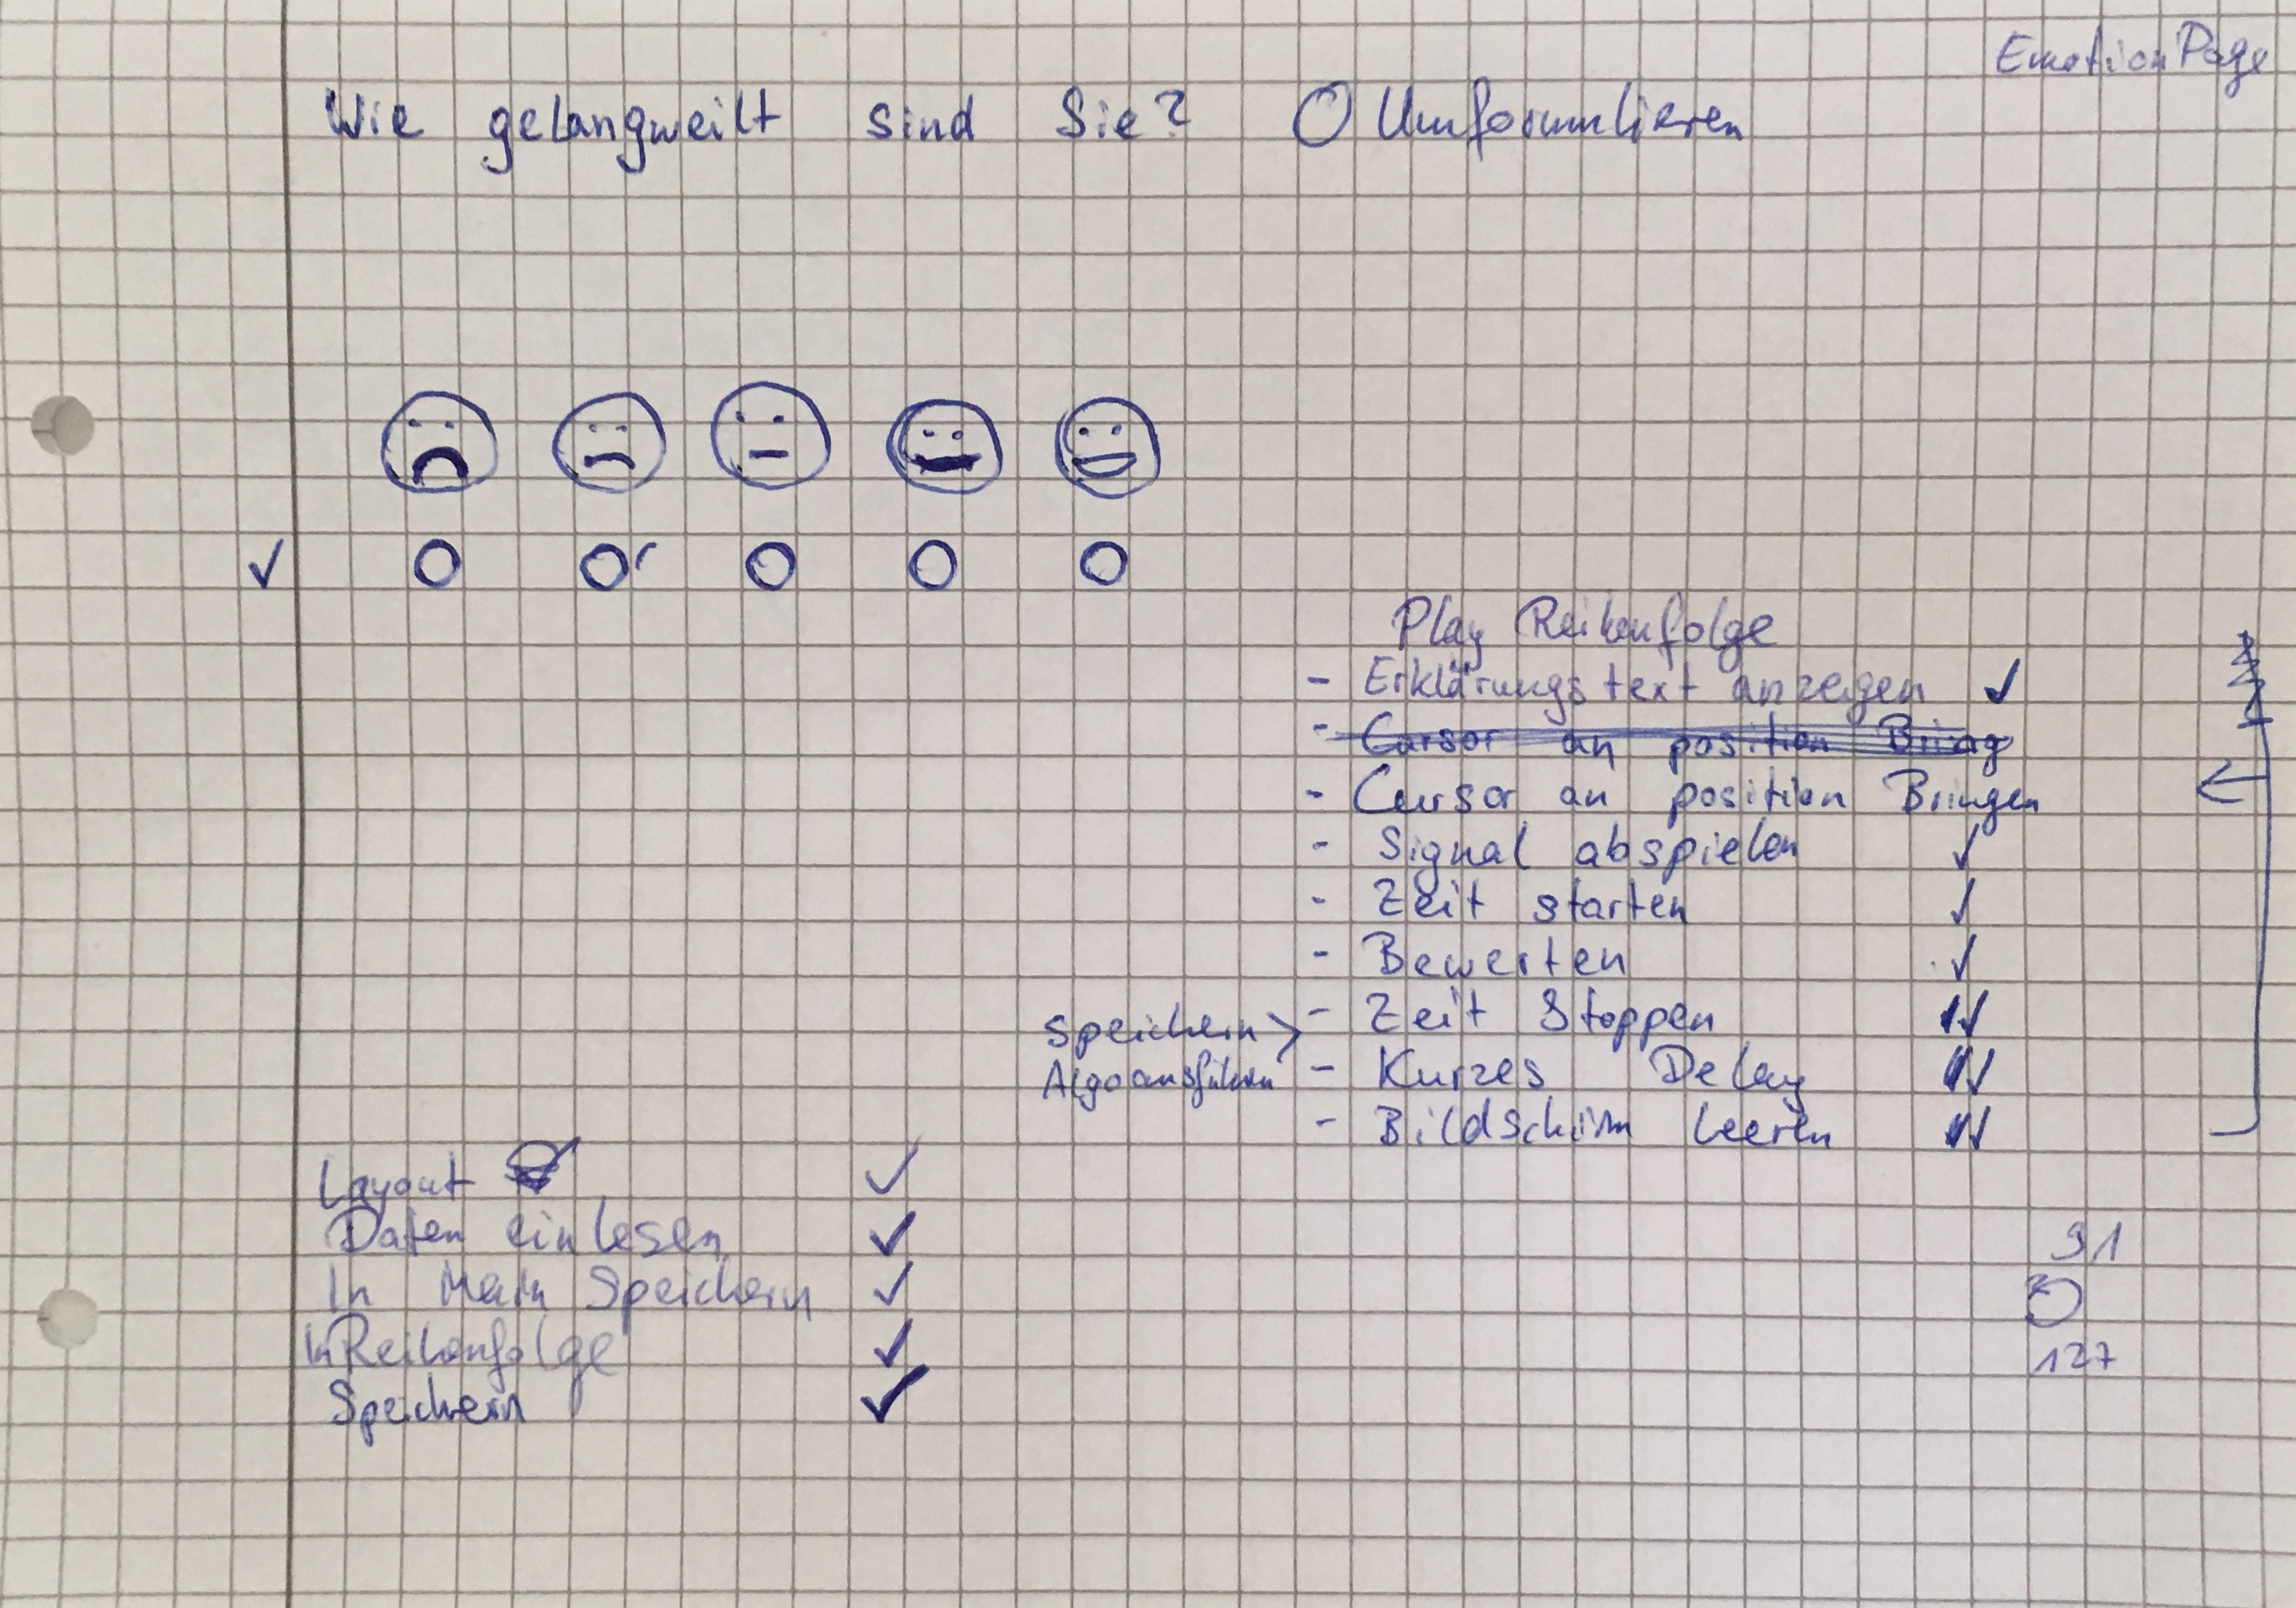 EmotionPage
Wie gelangweilt sind Sie? O Umformulieren
Play Reihenfolge
- Erklärungstext anzeigen ✓
- Cursor an position Bring
- Cursor an position Bringen
- Signal abspielen ✓
- Zeit starten ✓
- Bewerten ✓
Speichern > - Zeit Stoppen ✓
Algo ausführen - Kurzes Delay ✓
- Bildschirm leeren ✓
Layout ✓
Daten einlesen ✓
In Main Speichern ✓
In Reihenfolge ✓
Speichern ✓
91
127